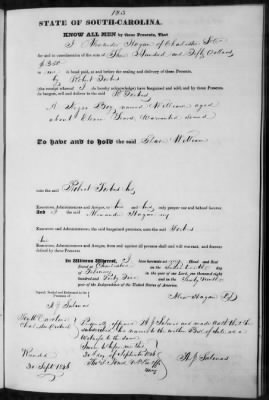 STATE OF SOUTH-CAROLINA.
KNOW ALL MEN by these Presents, That
I Alexander Hagan of Charleston State
for and in consideration of the sum of Three Hundred and Fifty Dollars
$350
to me in hand paid, at and before the sealing and delivery of these Presents,
by Robert Forbes
(the receipt whereof I do hereby acknowledge) have bargained and sold, and by these Presents,
do bargain, sell and deliver to the said R Forbes
A Negro Boy named William aged
about Eleven Years Warranted sound
To have and to hold the said Slave William
unto the said Robert Forbes his
Executors, Administrators and Assigns, to his and their only proper use and behoof forever.
And I the said Alexander Hagan my
Executors and Administrators, the said bargained premises, unto the said Forbes
his
Executors, Administrators and Assigns, from and against all persons shall and will warrant, and forever
defend by these Presents.
In Witness Whereof, I have hereunto set my Hand and Seal
Dated at Charleston on the day
of February in the year of our Lord, one thousand eight
hundred and Forty Five and in the Sixty Ninth
year of the Independence of the United States of America.
Signed, Sealed and Delivered in the
Presence of
Alexr Hagan
South Carolina
Charleston District
Personally appeared and made oath that he
subscribed his name to the within Bill of Sale as a
Witness to the same
Sworn to before me this
30 day of September 1846
Recorded
30 Sept 1846